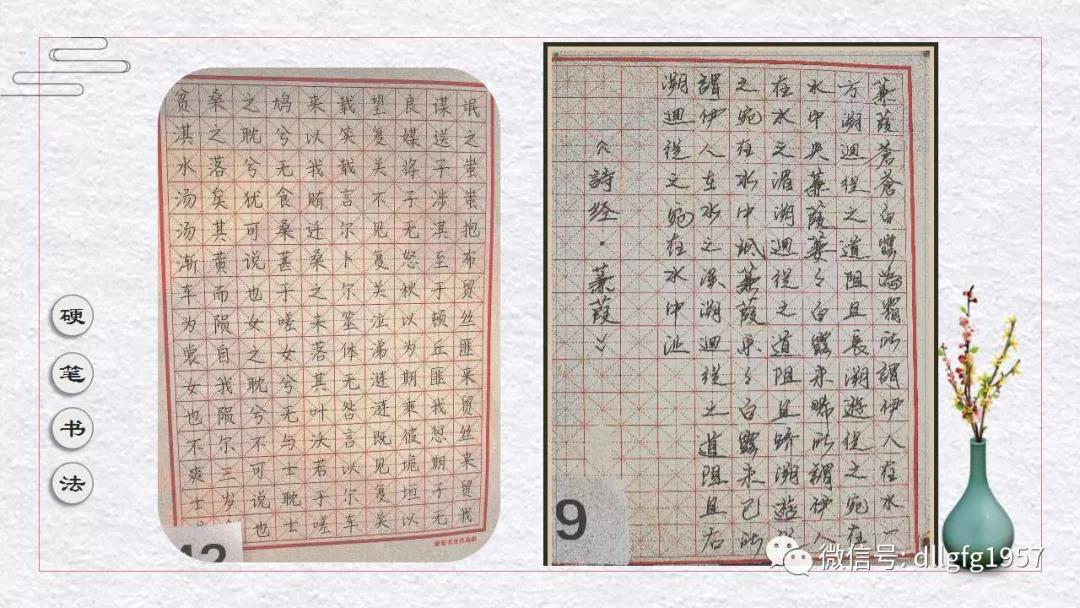 硬笔书法
氓之蚩蚩抱布贸丝匪来贸丝来贸我
谋送子涉淇至于顿丘匪我愆期子无
良媒将子无怒秋以为期乘彼垝垣以
望复关不见复关泣涕涟涟既见复关
载笑载言尔卜尔筮体无咎言以尔车
来以我贿迁桑之未落其叶沃若于嗟
鸠兮无食桑葚乎嗟女兮无与士耽士
之耽兮犹可说也女之耽兮不可说也
桑之落矣其黄而陨自我陨尔三岁
贫淇水汤汤渐车为裳女也不爽士
蒹葭蒼蒼白露為霜所謂伊人在水一
方溯迴從之道阻且長溯遊從之宛在
水中央蒹葭萋々白露未晞所謂伊人
在水之湄溯迴從之道阻且跻溯遊從
之宛在水中坻蒹葭采々白露未已所
謂伊人在水之涘溯迴從之道阻且右
溯迴從之宛在水中沚
《詩经·蒹葭》
9
微信号: dllgfg1957